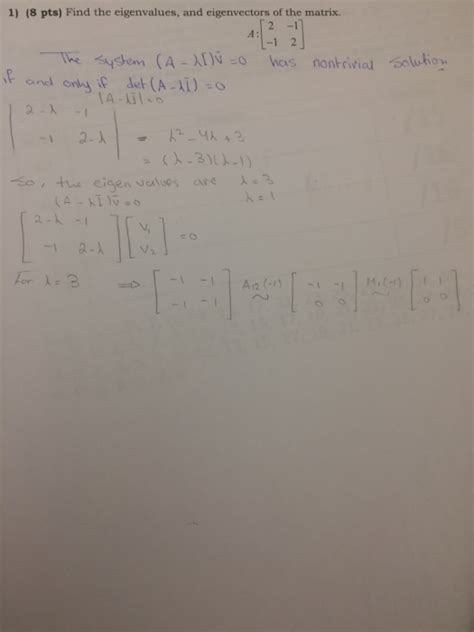 1) (8 pts) Find the eigenvalues, and eigenvectors of the matrix.
A: [2 -1
-1 2]
The system (A - λI)v̄ = 0 has nontrivial solution
if and only if det(A - λI) = 0
|A - λI| = 0
|2-λ -1
-1 2-λ| = λ² - 4λ + 3
= (λ-3)(λ-1)
So, the eigenvalues are λ = 3
(A - λI)v̄ = 0 λ = 1
[2-λ -1
-1 2-λ] [V₁
V₂] = 0
For λ = 3 ⇒ [-1 -1
-1 -1] A₁₂(-1) ~ [-1 -1
0 0] M₁(-1) ~ [1 1
0 0]